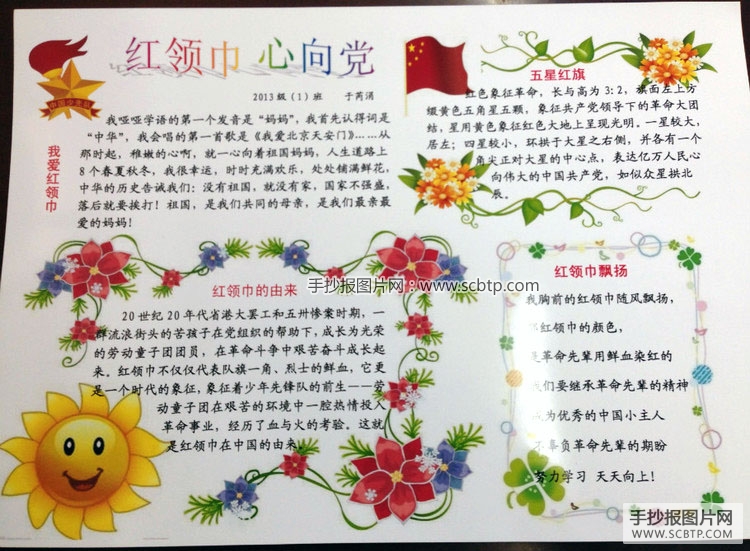 红领巾 心向党
2013级（1）班 于芮涓
我爱红领巾
我哑哑学语的第一个发音是“妈妈”，我首先认得词是
“中华”，我会唱的第一首歌是《我爱北京天安门》……从
那时起，稚嫩的心啊，就一心向着祖国妈妈，人生道路上
8个春夏秋冬，我很幸运，时时充满欢乐，处处铺满鲜花，
中华的历史告诫我们：没有祖国，就没有家，国家不强盛，
落后就要挨打！祖国，是我们共同的母亲，是我们最亲最
爱的妈妈！
五星红旗
红色象征革命，长与高为3：2，旗面左上方
缀黄色五角星五颗，象征共产党领导下的革命大团
结，星用黄色象征红色大地上呈现光明。一星较大，
居左；四星较小，环拱于大星之右侧，并各有一个
角尖正对大星的中心点，表达亿万人民心
向伟大的中国共产党，如似众星拱北
辰。
红领巾的由来
20世纪20年代省港大罢工和五卅惨案时期，一
群流浪街头的苦孩子在党组织的帮助下，成长为光荣
的劳动童子团团员，在革命斗争中艰苦奋斗成长起
来。红领巾不仅仅代表队旗一角、烈士的鲜血，它更
是一个时代的象征，象征着少年先锋队的前生——劳
动童子团在艰苦的环境中一腔热情投入
革命事业，经历了血与火的考验。这就
是红领巾在中国的由来
红领巾飘扬
我胸前的红领巾随风飘扬，
红领巾的颜色，
是革命先辈用鲜血染红的
我们要继承革命先辈的精神
成为优秀的中国小主人
不辜负革命先辈的期盼
努力学习 天天向上！
手抄报图片网：www.scbtp.com
手抄报图片网
WWW.SCBTP.COM